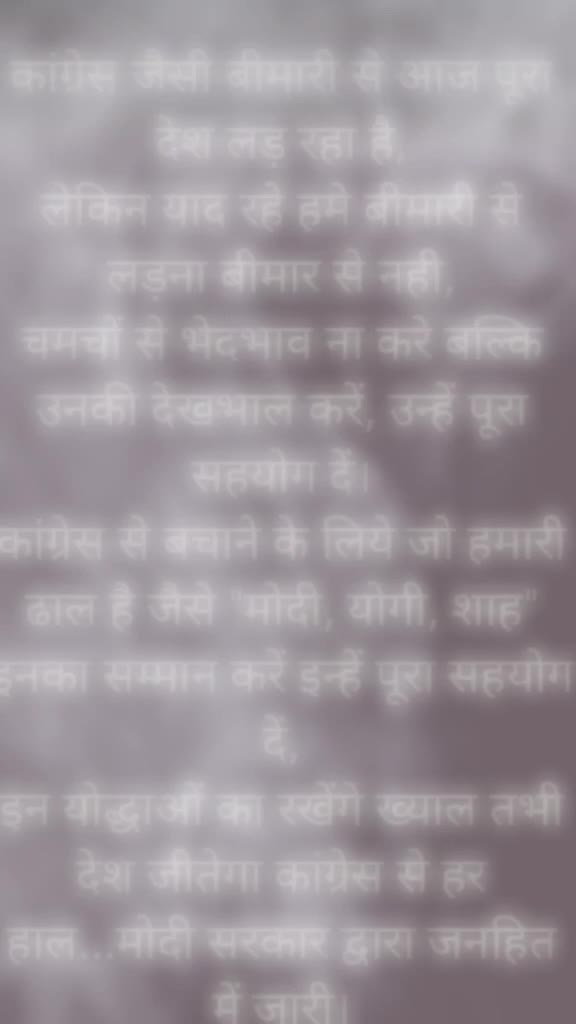 कांग्रेस जैसी बीमारी से आज पूरा
देश लड़ रहा है,
लेकिन याद रहे हमे बीमारी से
लड़ना बीमार से नही,
चमचों से भेदभाव ना करे बल्कि
उनकी देखभाल करें, उन्हें पूरा
सहयोग दें।
कांग्रेस से बचाने के लिये जो हमारी
ढाल है जैसे "मोदी, योगी, शाह"
इनका सम्मान करें इन्हें पूरा सहयोग
दें,
इन योद्धाओं का रखेंगे ख्याल तभी
देश जीतेगा कांग्रेस से हर
हाल...मोदी सरकार द्वारा जनहित
में जारी।